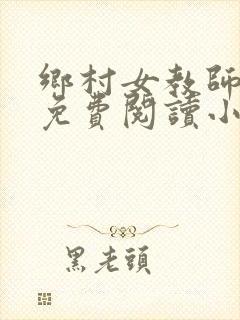 鄉村女教師
免費閱讀小
黑老頭